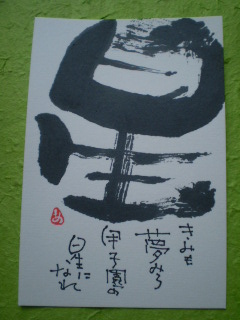 星
きみも
夢みろ
甲子園の
星に
なれ